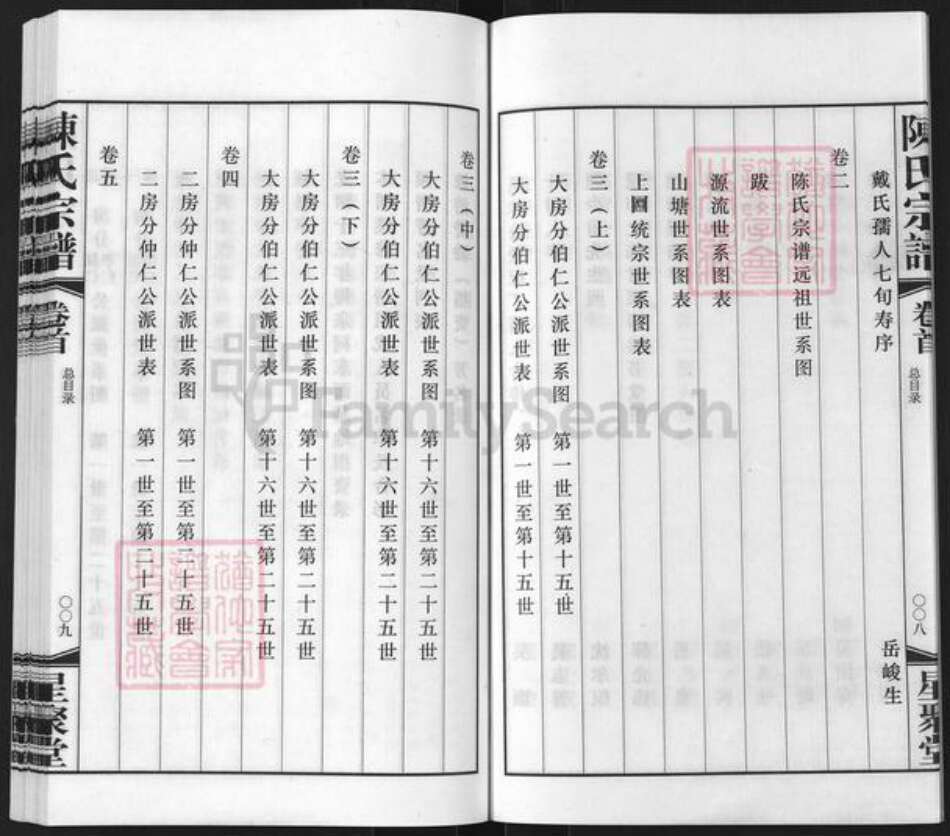 陳氏宗譜
卷首
总目录
〇〇八
星聚堂
戴氏孺人七旬寿序 岳峻生
卷二
陈氏宗谱远祖世系图
跋
源流世系图表
山塘世系图表
上图统宗世系图表
卷三（上）
大房分伯仁公派世系图 第一世至第十五世
大房分伯仁公派世表 第一世至第十五世
卷三（中）
大房分伯仁公派世系图 第十六世至第二十五世
大房分伯仁公派世表 第十六世至第二十五世
卷三（下）
大房分伯仁公派世系图 第十六世至第二十五世
大房分伯仁公派世表 第十六世至第二十五世
卷四
二房分仲仁公派世系图 第一世至第二十五世
二房分仲仁公派世表 第一世至第二十五世
卷五
陳氏宗譜
卷首
总目录
〇〇九
星聚堂
FamilySearch